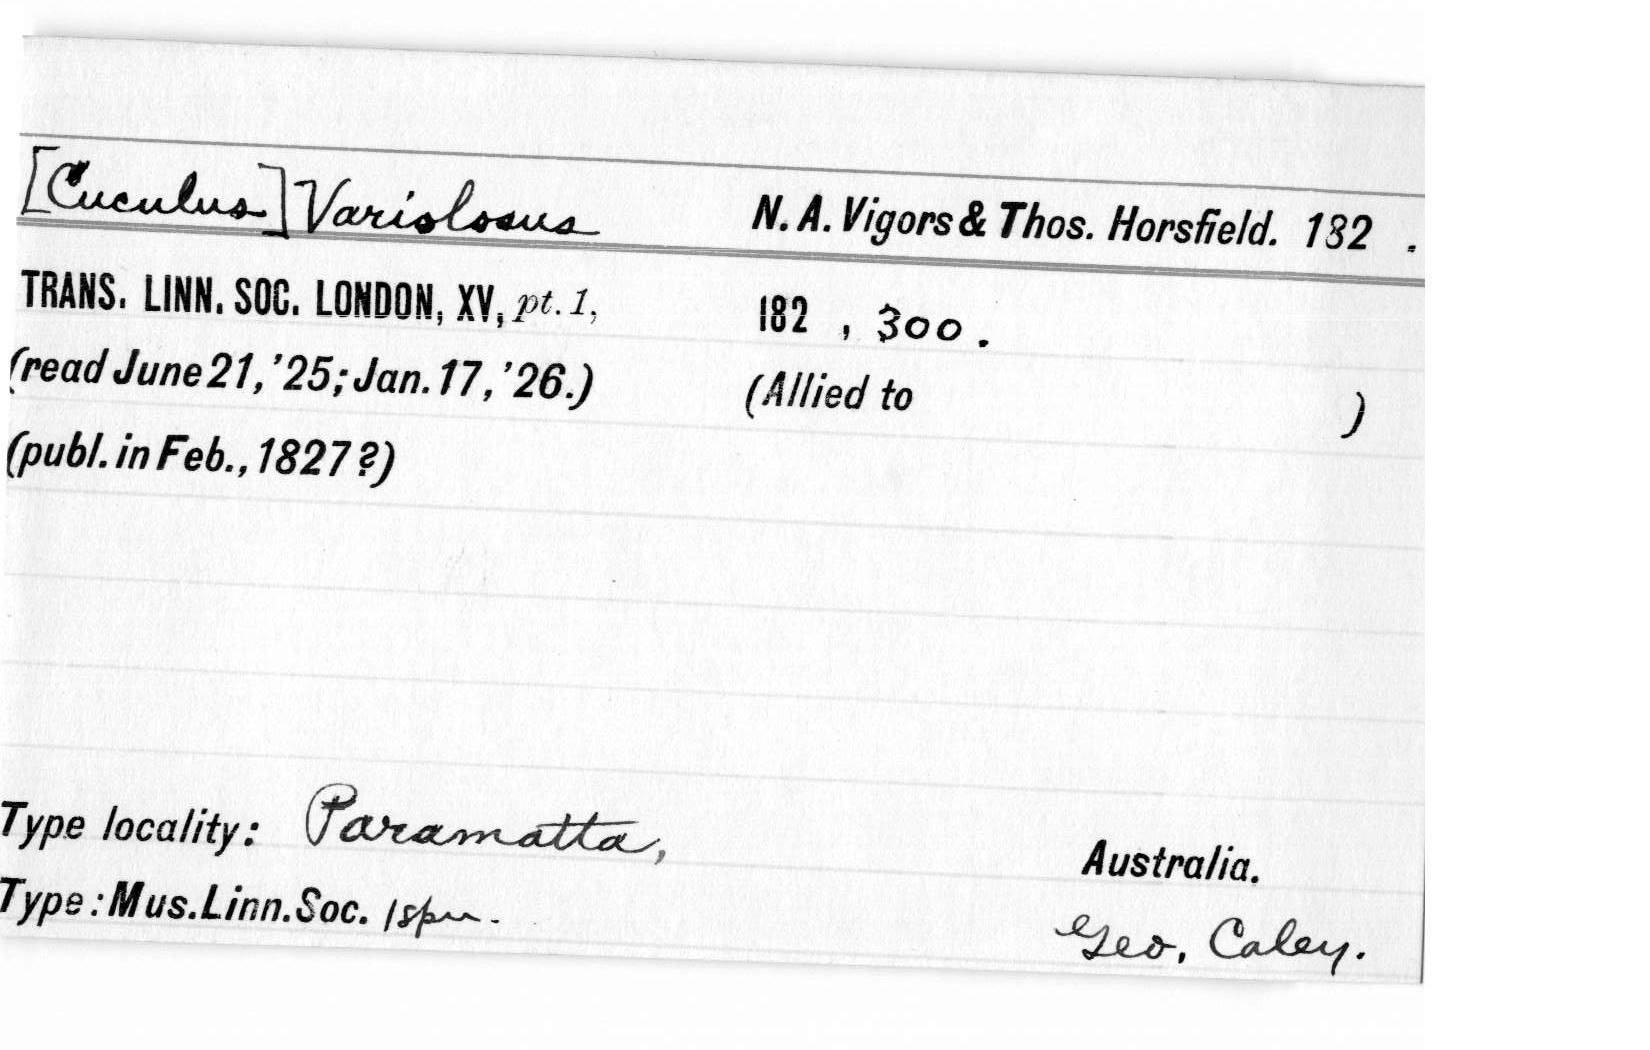 [Cuculus] Variolosus N. A. Vigors & Thos. Horsfield. 182 .
TRANS. LINN. SOC. LONDON, XV, pt. 1, 182 , 300 .
(read June 21, '25; Jan. 17, '26.) (Allied to )
(publ. in Feb., 1827?)
Type locality: Paramatta, Australia.
Type: Mus. Linn. Soc. 1 spm. Geo. Caley.